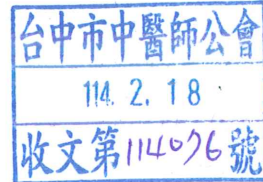 台中市中醫師公會
114. 2. 18
收文第114076號